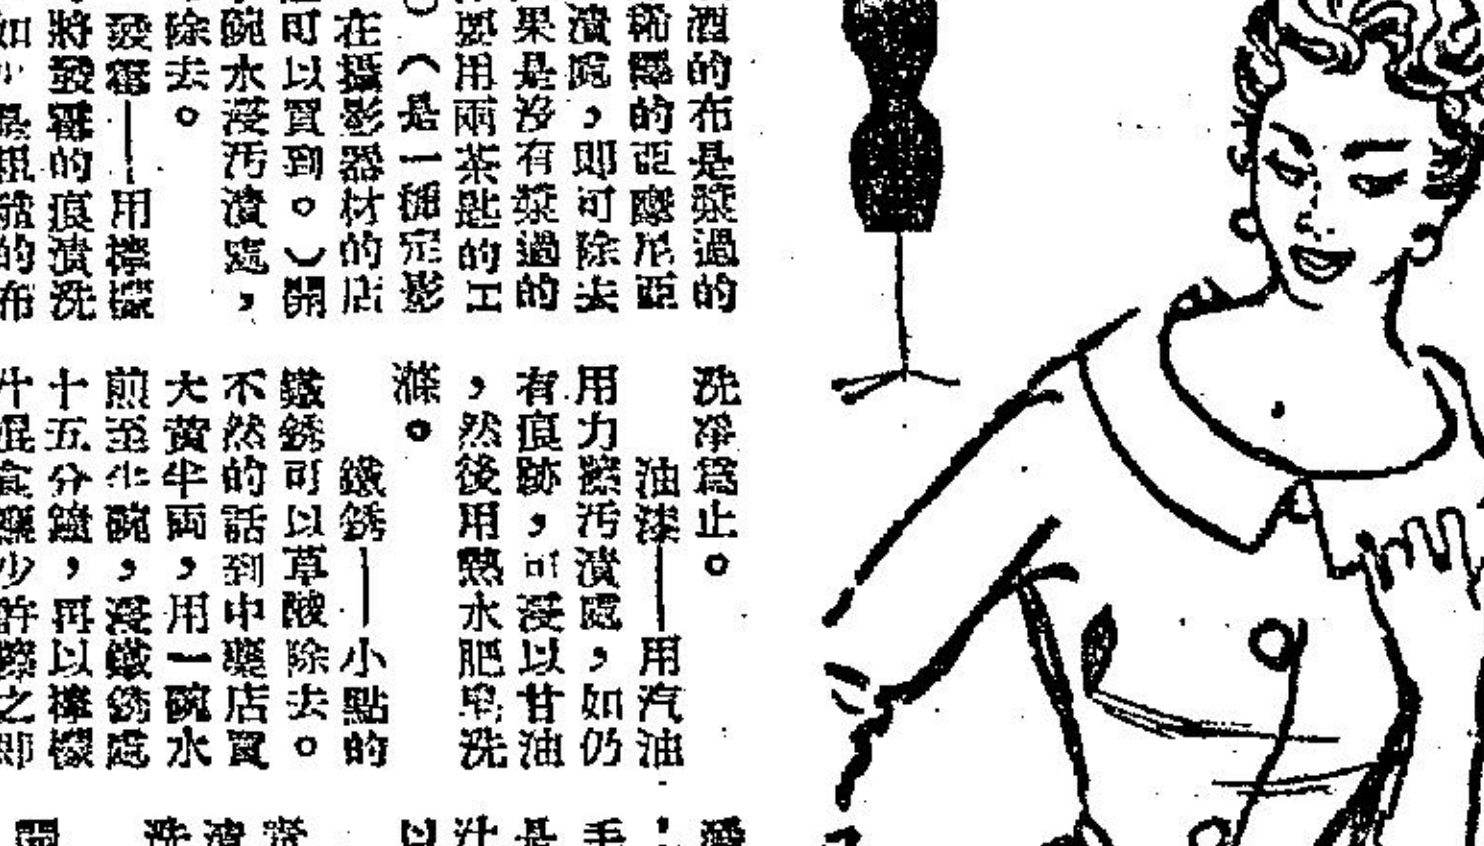 酒的布是漿過的
稀釋的亞摩尼亞
漬處，即可除去
果是沒有漿過的
要用兩茶匙的工
）（是一種定影
在攝影器材的店
可以買到。）開
碗水浸污漬處，
除去。
發霉——用檸檬
將發霉的痕漬洗
的布
洗淨爲止。
油漆——用汽油
用力擦污漬處，如仍
有痕跡，可浸以甘油
，然後用熱水肥皂洗
滌。
鐵銹——小點的
鐵銹可以草酸除去。
不然的話到中藥店買
大黃半両，用一碗水
煎至半碗，浸鐵銹處
十五分鐘，再以檸檬
汁混食鹽少許擦之即